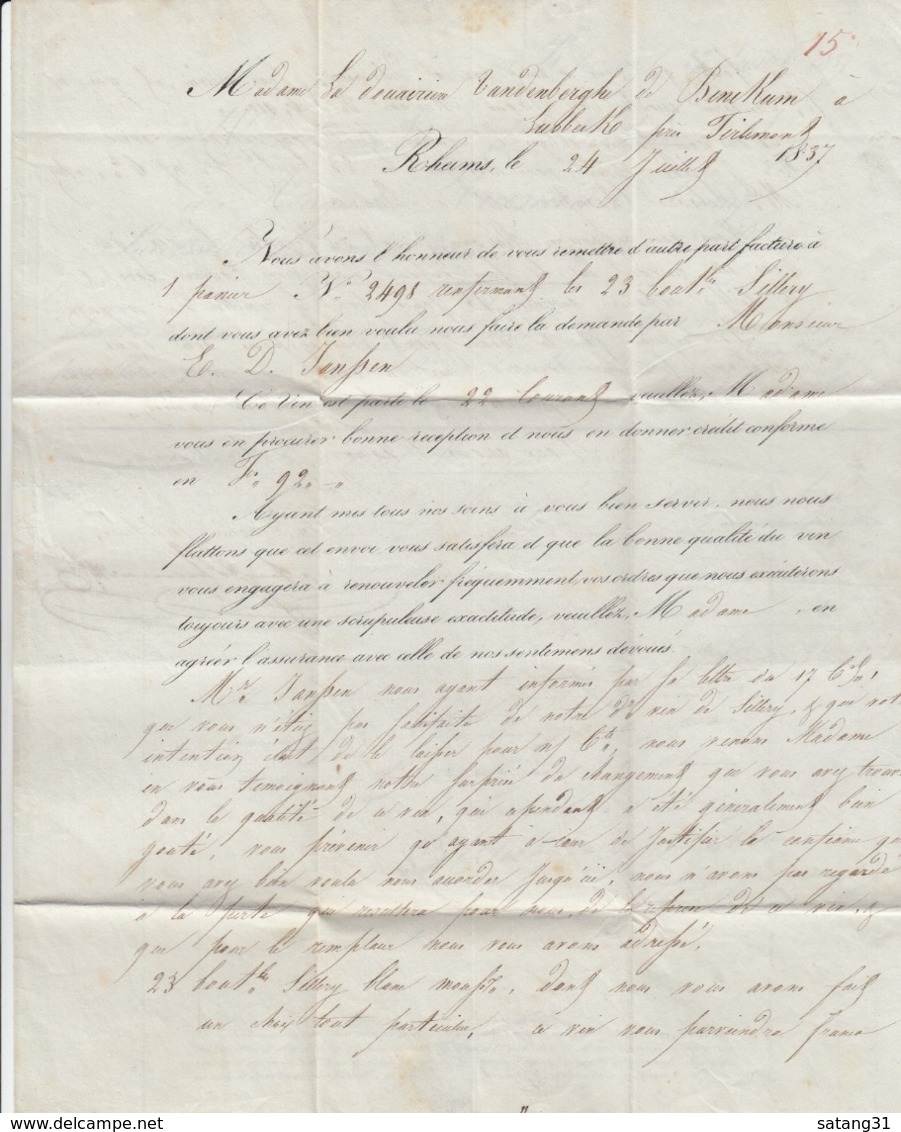 15
Madame La douairière Vandenberghe de Binckum à
Lubbeck près Tirlemont
Rheims, le 24 Juillet 1837
Nous avons l'honneur de vous remettre d'autre part facture à
1 panier N° 2498 renfermant les 23 boutlles Sillery
dont vous avez bien voulu nous faire la demande par Monsieur
E. D. Janssen
Ce Vin est parti le 22 Courant veuillez, Madame
vous en procurer bonne réception et nous en donner crédit conforme
en F° 92
Ayant mis tous nos soins à vous bien servir, nous nous
flattons que cet envoi vous satisfera et que la bonne qualité du vin
vous engagera à renouveler fréquemment vos ordres que nous exécuterons
toujours avec une scrupuleuse exactitude, veuillez, Madame, en
agréer l'assurance avec celle de nos sentimens dévoués.
Mr. Janssen nous ayant informés par sa lettre du 17
que vous n'étiez pas satisfaite de notre dr vin de Sillery, & que votre
intention était de le laisser pour n/ Cte, nous venons Madame
en vous témoignant notre surprise du changement que vous avez trouvé
dans la qualité de ce vin, qui cependant a été généralement bien
gouté, vous prévenir qu'ayant à cœur de justifier la confiance que
vous avez bien voulu nous accorder jusqu'ici, nous n'avons pas regardé
à la perte qui résultera pour nous, de la reprise de ce vin, &
que pour le remplacer nous vous avons adressé,
23 boutlles Sillery blanc mousx, dont nous vous avons fait
un choix tout particulier, ce vin vous parviendra franco
delcampe.net
satang31